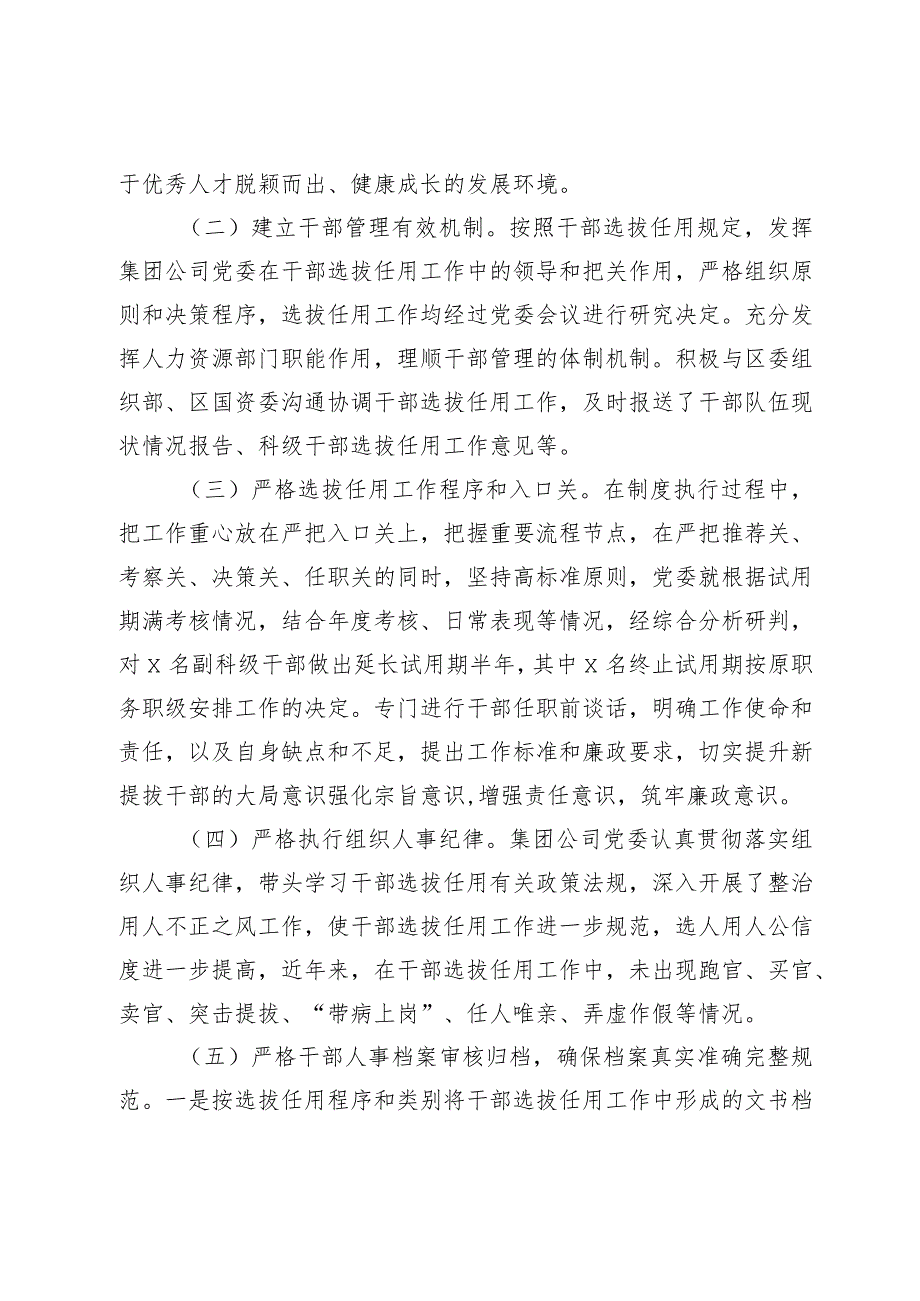 于优秀人才脱颖而出、健康成长的发展环境。
（二）建立干部管理有效机制。按照干部选拔任用规定，发挥
集团公司党委在干部选拔任用工作中的领导和把关作用，严格组织原
则和决策程序，选拔任用工作均经过党委会议进行研究决定。充分发
挥人力资源部门职能作用，理顺干部管理的体制机制。积极与区委组
织部、区国资委沟通协调干部选拔任用工作，及时报送了干部队伍现
状情况报告、科级干部选拔任用工作意见等。
（三）严格选拔任用工作程序和入口关。在制度执行过程中，
把工作重心放在严把入口关上，把握重要流程节点，在严把推荐关、
考察关、决策关、任职关的同时，坚持高标准原则，党委就根据试用
期满考核情况，结合年度考核、日常表现等情况，经综合分析研判，
对 x 名副科级干部做出延长试用期半年，其中 x 名终止试用期按原职
务职级安排工作的决定。专门进行干部任职前谈话，明确工作使命和
责任，以及自身缺点和不足，提出工作标准和廉政要求，切实提升新
提拔干部的大局意识强化宗旨意识,增强责任意识，筑牢廉政意识。
（四）严格执行组织人事纪律。集团公司党委认真贯彻落实组
织人事纪律，带头学习干部选拔任用有关政策法规，深入开展了整治
用人不正之风工作，使干部选拔任用工作进一步规范，选人用人公信
度进一步提高，近年来，在干部选拔任用工作中，未出现跑官、买官、
卖官、突击提拔、“带病上岗”、任人唯亲、弄虚作假等情况。
（五）严格干部人事档案审核归档，确保档案真实准确完整规
范。一是按选拔任用程序和类别将干部选拔任用工作中形成的文书档